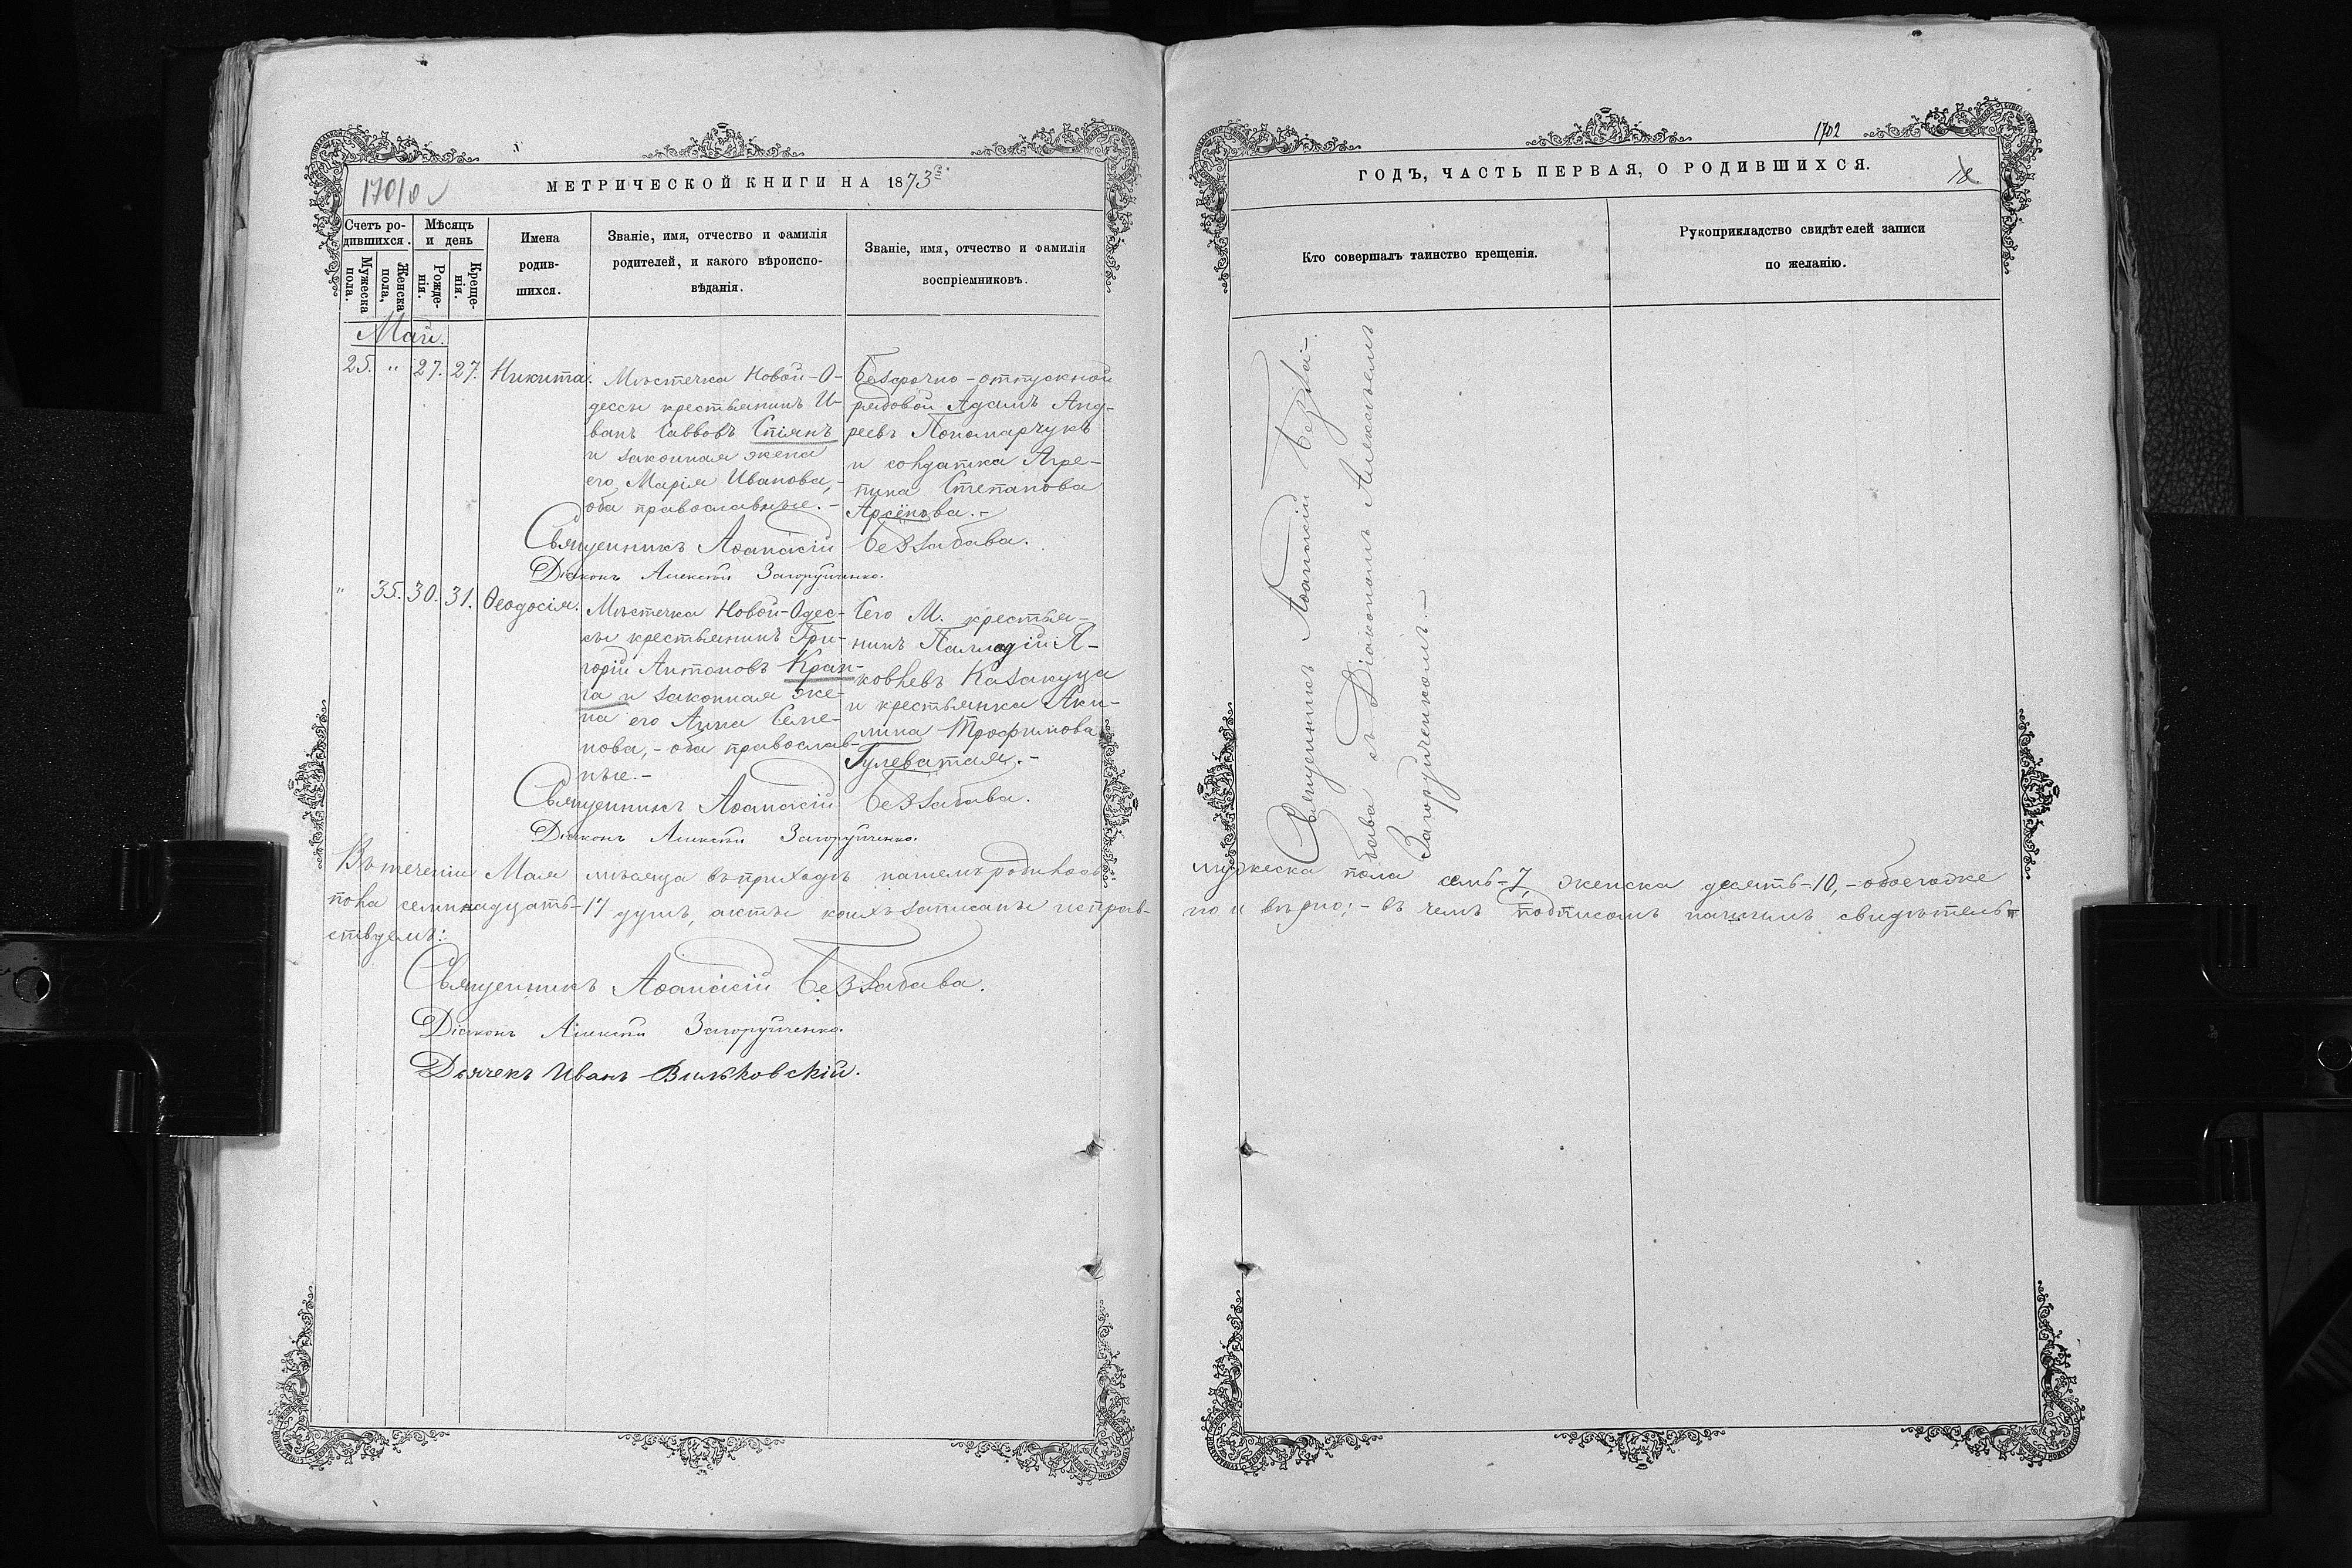 1701 об
МЕТРИЧЕСКОЙ КНИГИ НА 1873й
Счетъ ро-
дившихся.
Мужеска
пола.
Женска
пола,
Мѣсяцъ
и день
Рожде-
нія.
Креще-
нія.
Имена
родив-
шихся.
Званіе, имя, отчество и фамилія
родителей, и какого вѣроиспо-
вѣданія.
Званіе, имя, отчество и фамилія
воспріемниковъ.
Май.
25. " 27. 27. Никита.
Мѣстечка Новой-О-
дессы крестьянинъ И-
ванъ Саввовъ Стіянъ
и законная жена
его Марія Иванова,-
оба православные.-
Безсрочно-отпускной
рядовой Адамъ Анд-
реевъ Пономарчукъ
и солдатка Агре-
пина Степанова
Арсёнова.-
Священникъ Аѳанасій Беззабава.
Діаконъ Алексѣй Загоруйченко.
" 35. 30. 31. Ѳеодосія.
Мѣстечка Новой-Одес-
сы крестьянинъ Гри-
горій Антоновъ Кран-
га и законная же-
на его Анна Семе-
нова,- оба православ-
ные.-
Сего М. крестья-
нинъ Палладій Я-
ковлевъ Казакуца
и крестьянка Аки-
лина Трофимова
Гулеватая.-
Священникъ Аѳанасій Беззабава.
Діаконъ Алексѣй Загоруйченко.
Въ теченіи Мая мѣсяца въ приходѣ нашемъ родилось
пола семнадцать-17 душъ, акты коихъ записаны исправ-
ствуемъ:
Священникъ Аѳанасій Беззабава.
Діаконъ Алексѣй Загоруйченко.
Дьячекъ Иванъ Вильковскій.
1702
18
ГОДЪ, ЧАСТЬ ПЕРВАЯ, О РОДИВШИХСЯ.
Кто совершалъ таинство крещенія.
Рукоприкладство свидѣтелей записи
по желанію.
Священникъ Аѳанасій Безза-
бава съ Діакономъ Алексѣемъ
Загоруйченкомъ.-
мужеска пола семь-7, женска десять-10,-обоегоже
но и вѣрно;- въ чемъ подписомъ нашимъ свидѣтель-